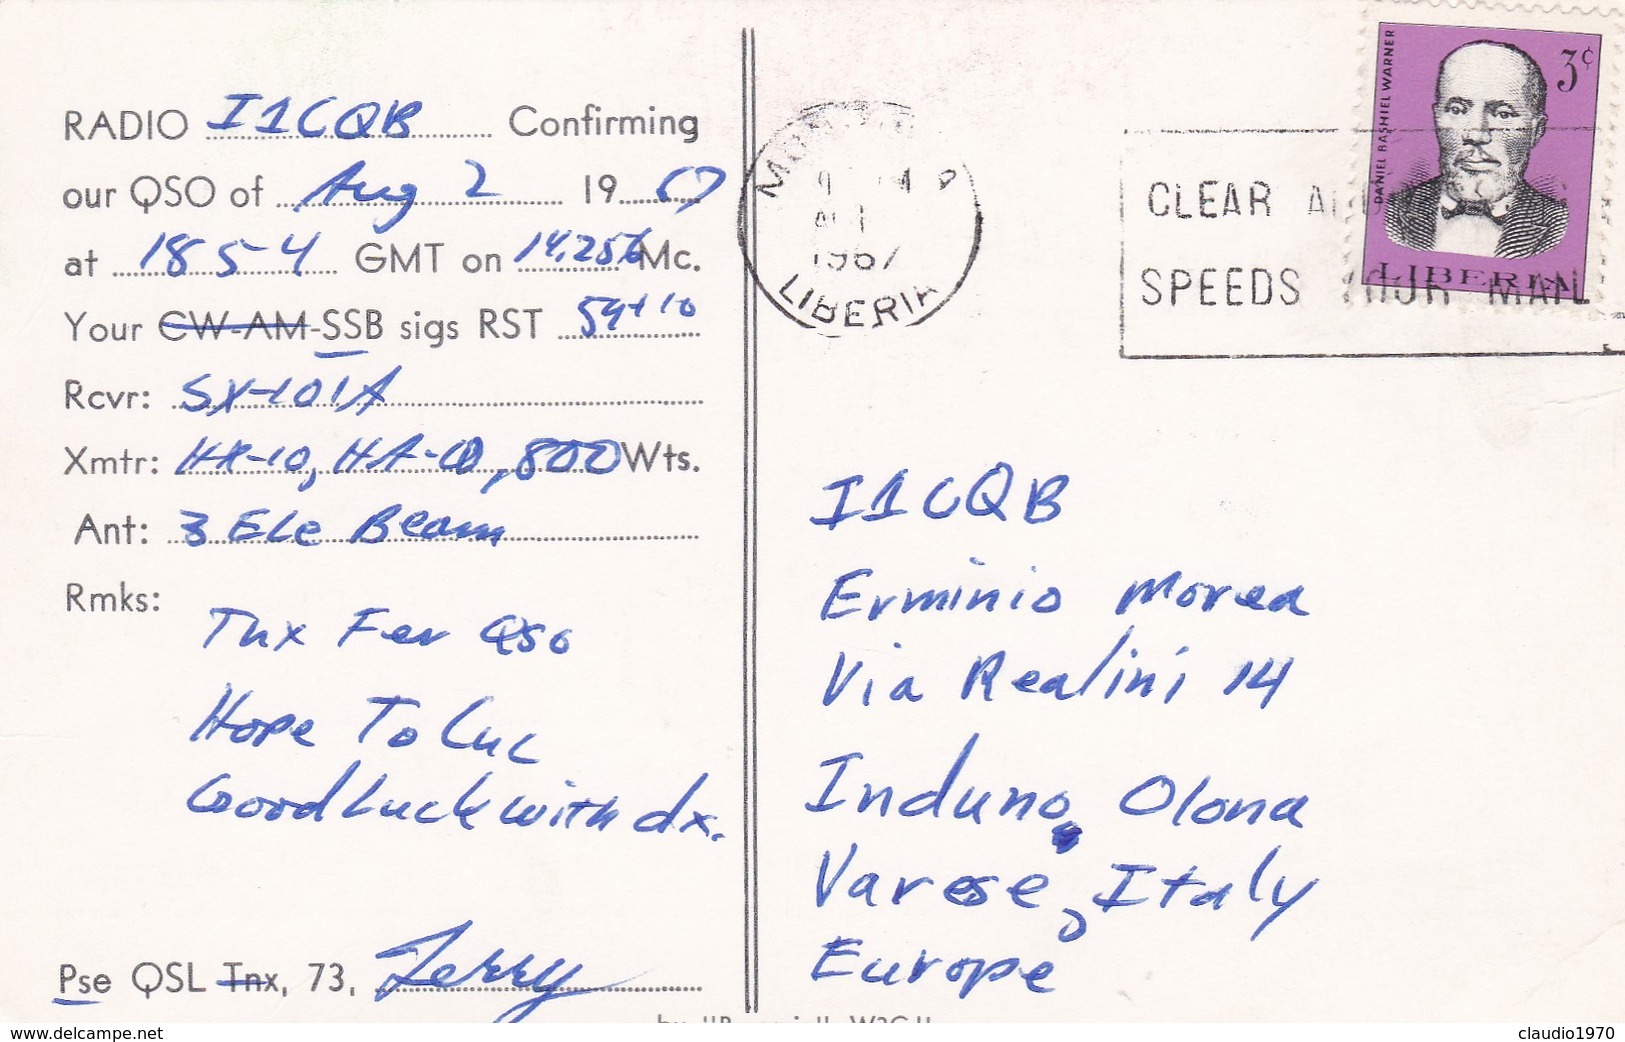 RADIO I1CQB Confirming
our QSO of Aug 2 1967
at 1854 GMT on 14.256 Mc.
Your CW-AM-SSB sigs RST 59+10
Rcvr: SX-101A
Xmtr: HX-10, HA-10, 800 Wts.
Ant: 3 Ele Beam
Rmks:
Tnx Fer QSO
Hope To Cuc
Good Luck with dx.
Pse QSL Tnx, 73, Jerry
LIBERIA
1967
CLEAR
SPEEDS YOUR MAIL
DANIEL BASHIEL WARNER
3¢
LIBERIA
I1CQB
Erminio Morea
Via Realini 14
Induno Olona
Varese, Italy
Europe
www.delcampe.net
claudio1970